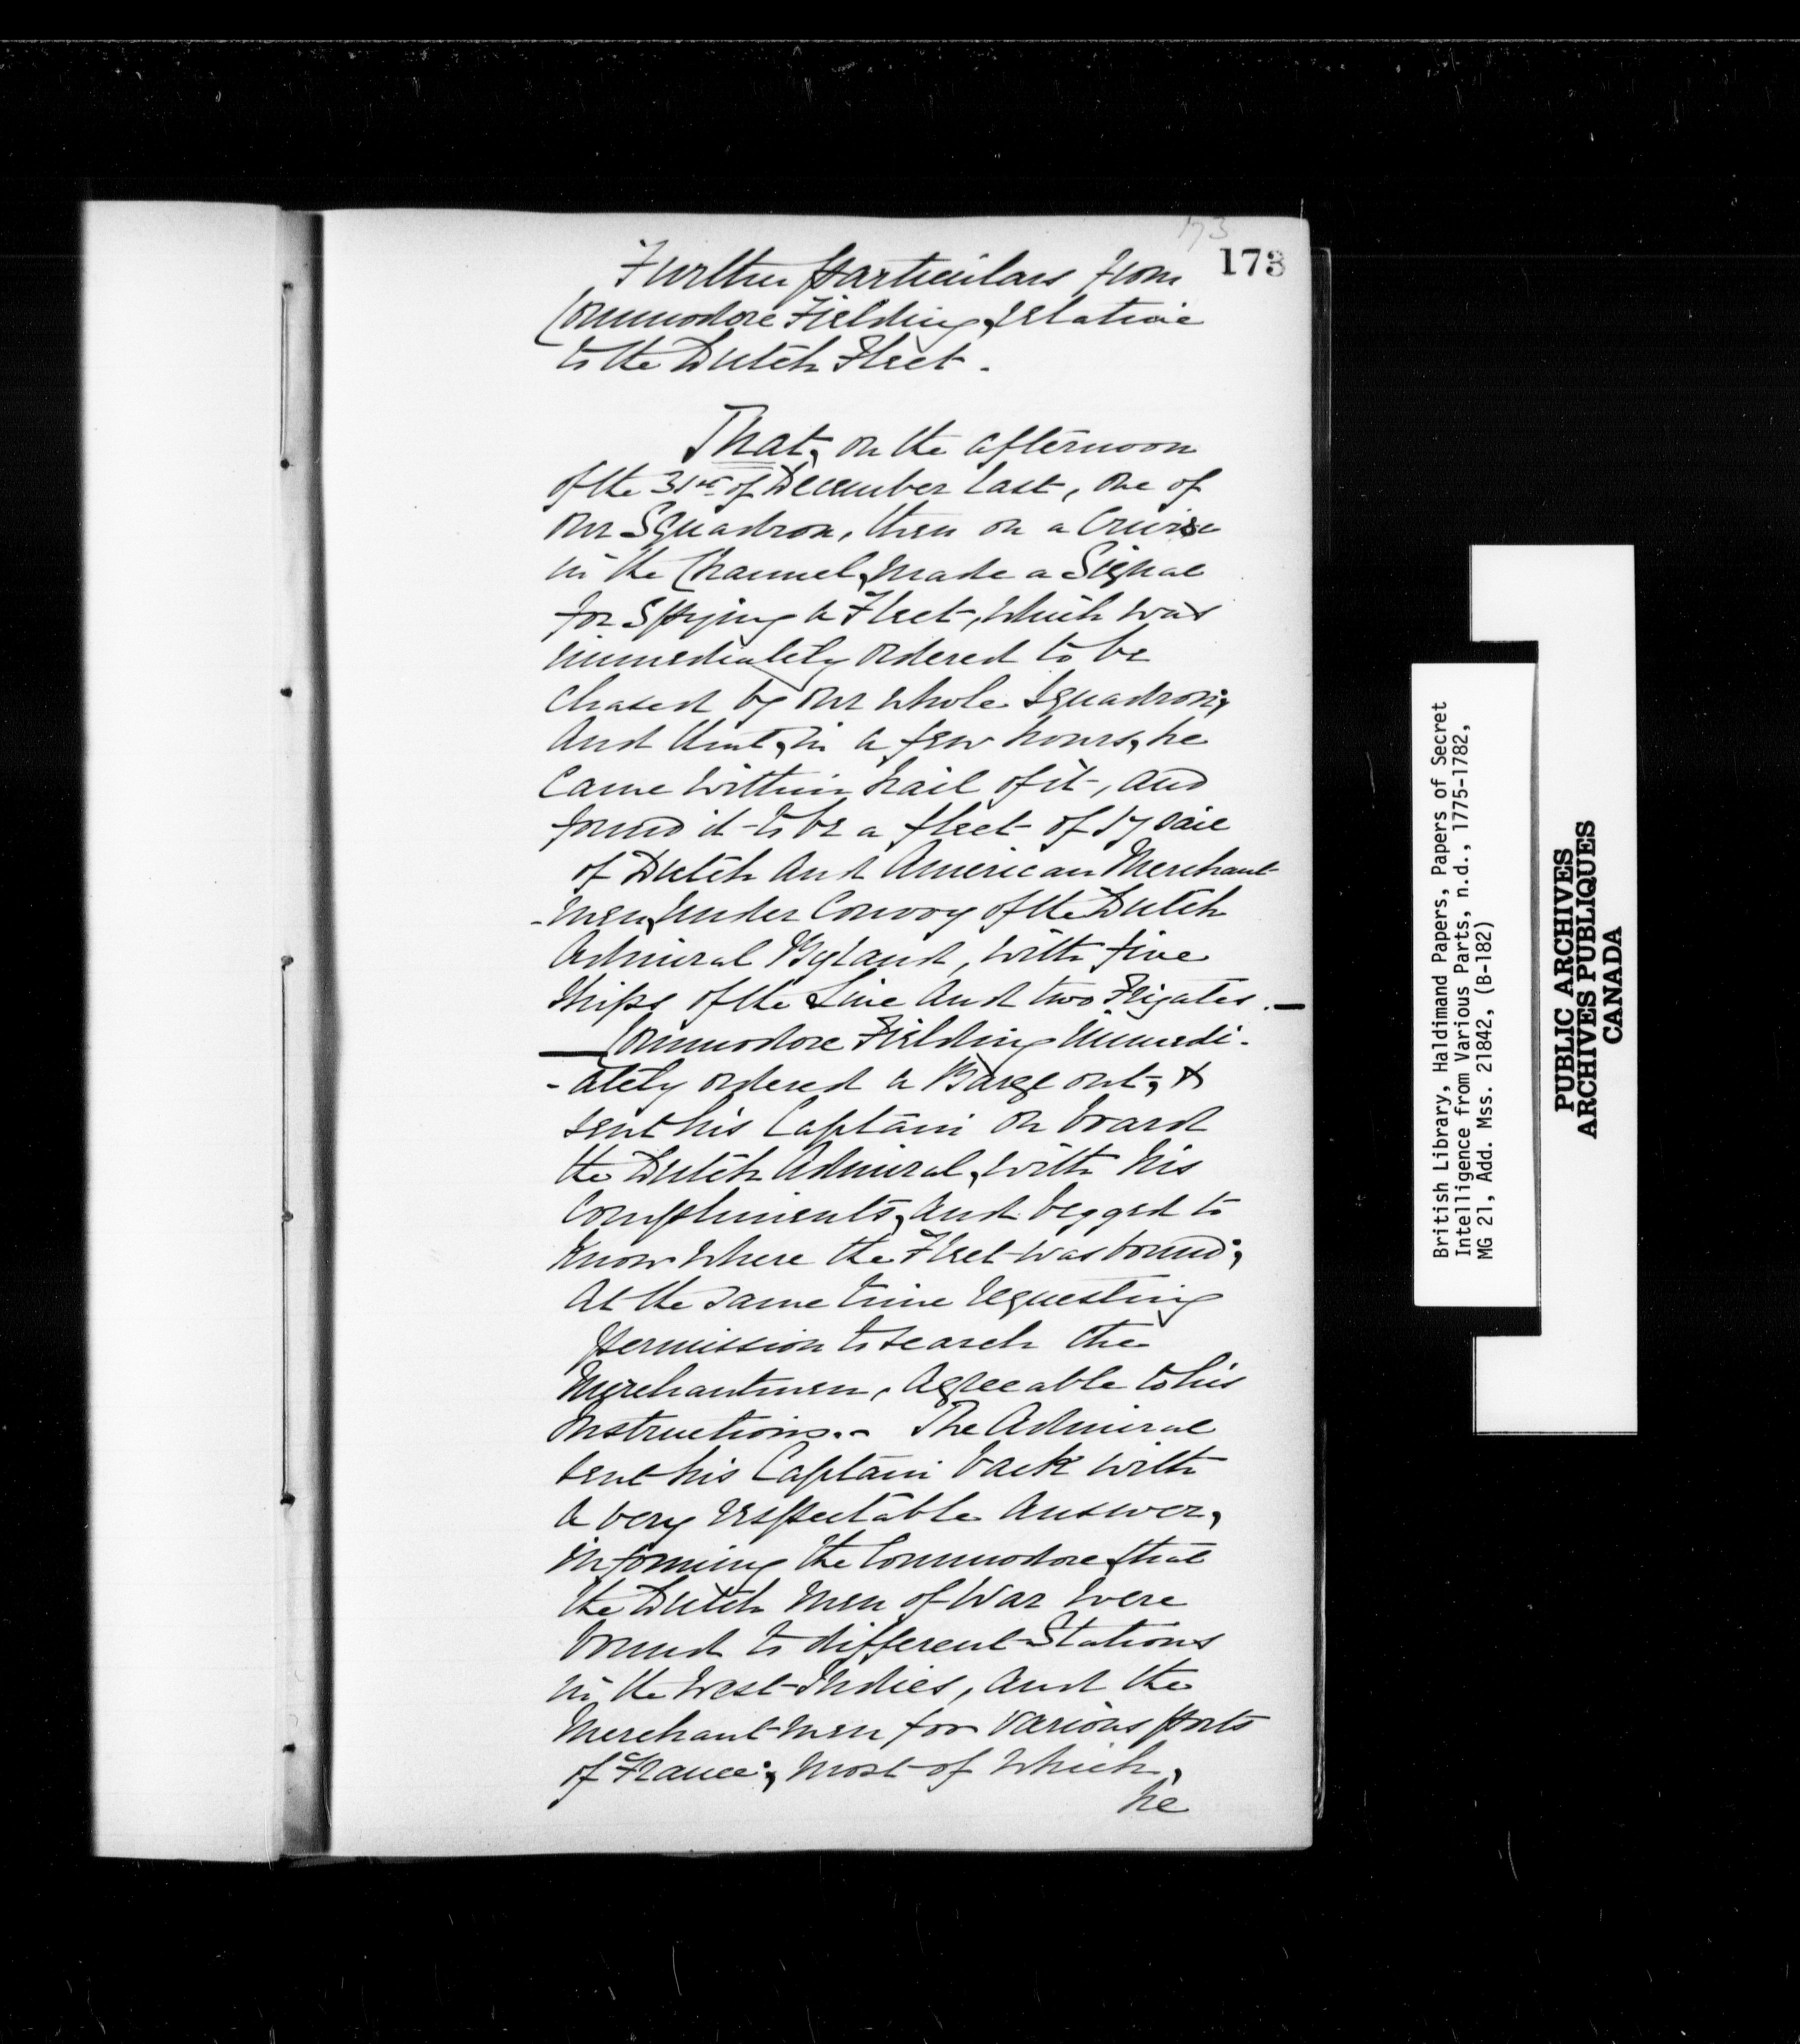 173
173
Further particulars from
Commodore Fielding, relative
to the Dutch Fleet.
That, on the afternoon
of the 31st of December last, one of
our Squadron, then on a Cruise
in the Channel, made a Signal
for Spying a Fleet, which was
immediately ordered to be
Chased by our whole Squadron;
And that, in a few hours, he
Came within hail of it, and
found it to be a fleet of 17 sail
of Dutch and American Merchant-
-men, under Convoy of the Dutch
Admiral Byland, with five
Ships of the Line and two Frigates.—
— Commodore Fielding immedi-
-ately ordered a Barge out, &
sent his Captain on board
the Dutch Admiral, with his
Compliments, and begged to
Know where the Fleet was bound;
At the same time requesting
permission to search the
Merchantmen, agreeable to his
Instructions.- The Admiral
sent his Captain back with
a very respectable Answer,
informing the Commodore, that
the Dutch Men of War were
bound to different Stations
in the West-Indies, and the
Merchant-men for various ports
of France; most of which,
he
British Library, Haldimand Papers, Papers of Secret
Intelligence from Various Parts, n.d., 1775-1782,
MG 21, Add. Mss. 21842, (B-182)
PUBLIC ARCHIVES
ARCHIVES PUBLIQUES
CANADA